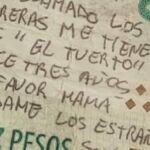 LLAMADO LOS
RERAS ME TIENE
E "EL TUERTO"
CE TRES AÑOS.
FAVOR MAMÁ
GAME LOS ESTRAÑ
PESOS